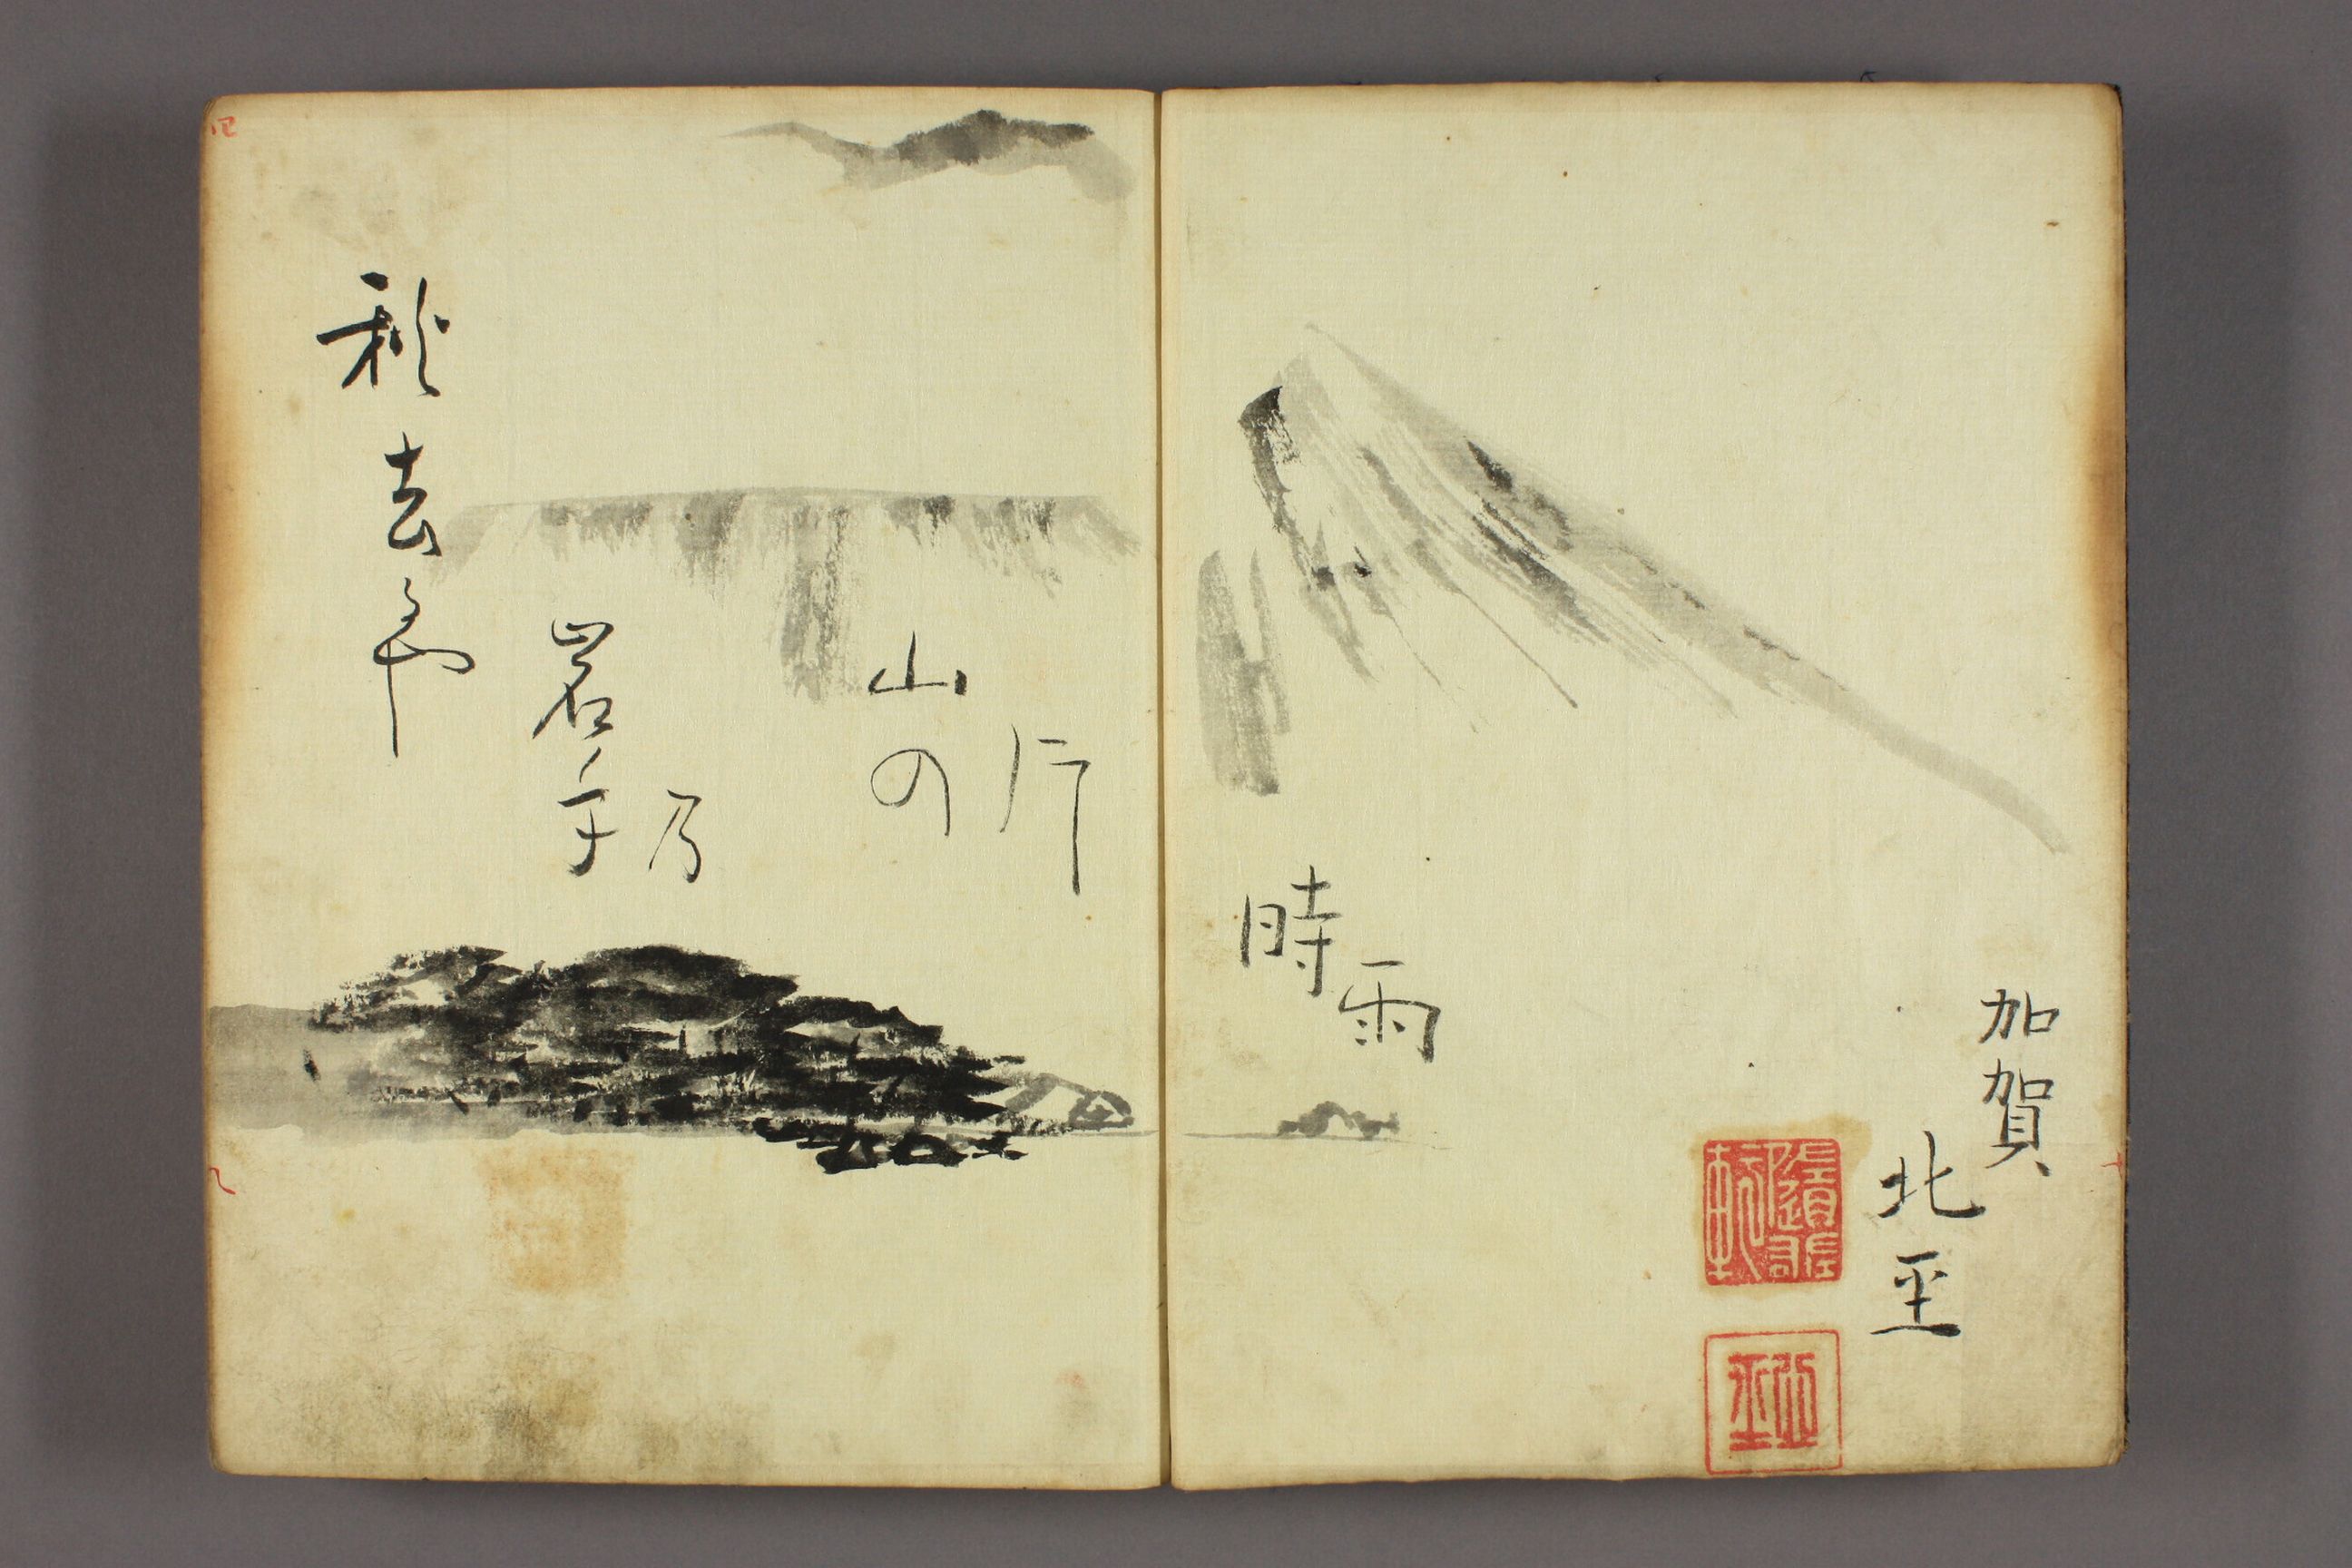 秋去るや
岩手
乃
山の
片
時
雨
加賀
北